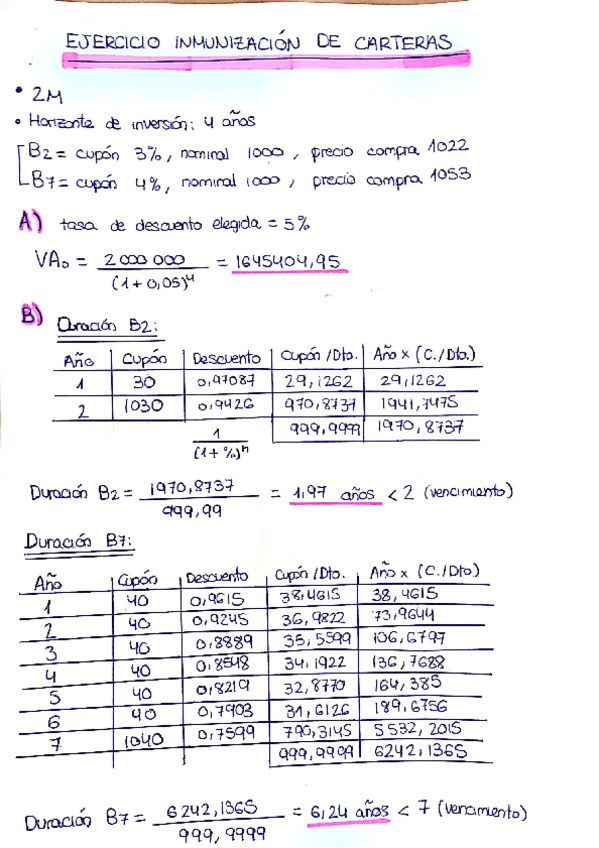 EJERCICIO INMUNIZACIÓN DE CARTERAS
• 2M
• Horizonte de inversión: 4 años
B2 = cupón 3%, nominal 1000, precio compra 1022
B7 = cupón 4%, nominal 1000, precio compra 1053
A) tasa de descuento elegida = 5%
VA0 = 2000 000 / (1+0,05)^4 = 1645404,95
B) Duración B2:
Año | Cupón | Descuento | Cupón/Dto. | Año x (C./Dto.)
1 | 30 | 0,97087 | 29,1262 | 29,1262
2 | 1030 | 0,9426 | 970,8737 | 1941,7475
1 / (1+%)^n | 999,9999 | 1970,8737
Duración B2 = 1970,8737 / 999,99 = 1,97 años < 2 (vencimiento)
Duración B7:
Año | Cupón | Descuento | Cupón/Dto. | Año x (C./Dto)
1 | 40 | 0,9615 | 38,4615 | 38,4615
2 | 40 | 0,9245 | 36,9822 | 73,9644
3 | 40 | 0,8889 | 35,5599 | 106,6797
4 | 40 | 0,8548 | 34,1922 | 136,7688
5 | 40 | 0,8219 | 32,8770 | 164,385
6 | 40 | 0,7903 | 31,6126 | 189,6756
7 | 1040 | 0,7599 | 790,3145 | 5532,2015
999,9999 | 6242,1365
Duración B7 = 6242,1365 / 999,9999 = 6,24 años < 7 (vencimiento)